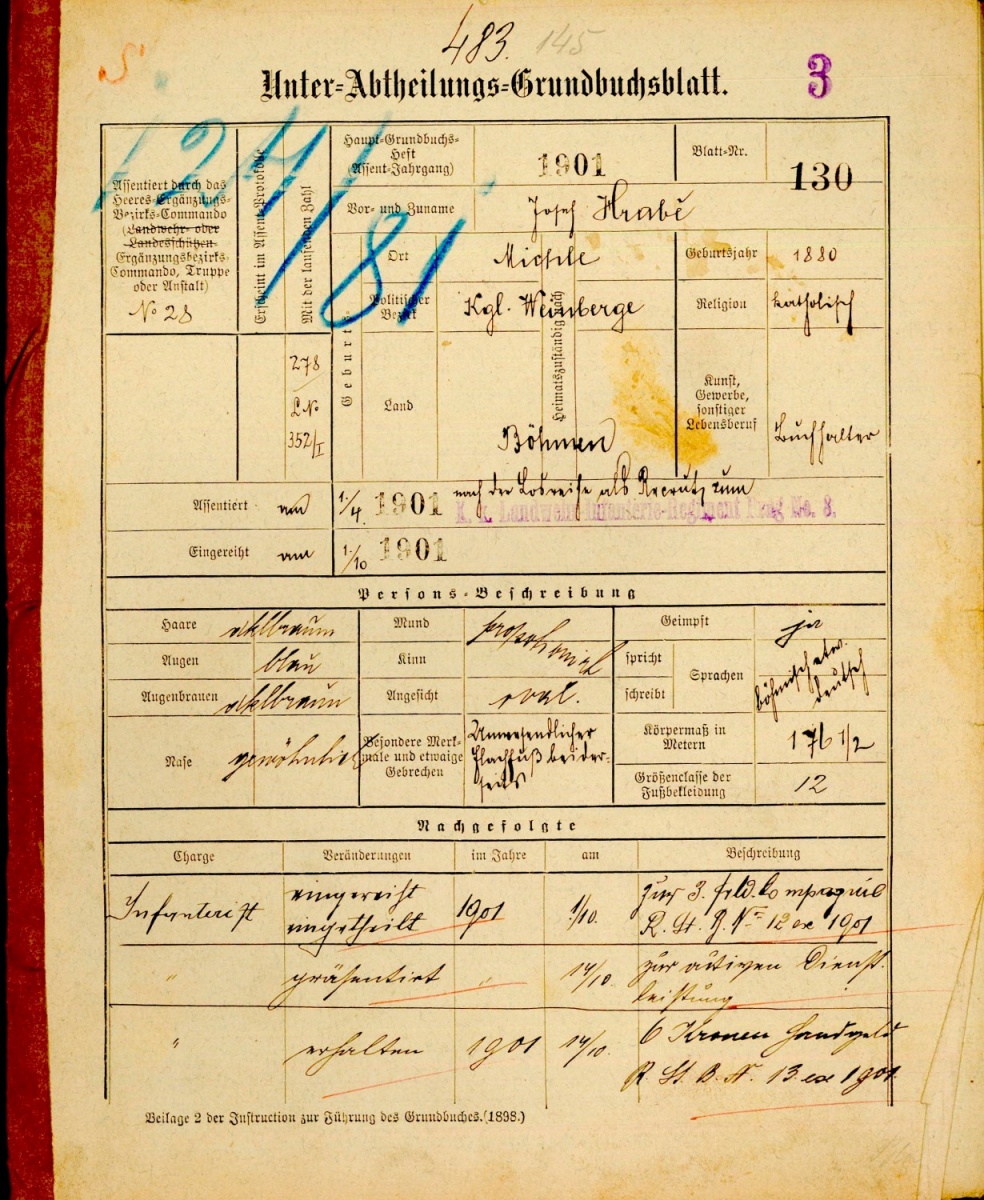 483. 145
Unter-Abtheilungs-Grundbuchsblatt.
3
Assentiert durch das
Heeres-Ergänzungs-
Bezirks-Commando
(Landwehr- oder
Landesschützen-
Ergänzungsbezirks-
Commando, Truppe
oder Anstalt)
No 28
Erscheint im Assent-Protokolle
Mit der laufenden Zahl
278
L No
352/I
Haupt-Grundbuchs-
Heft
(Assent-Jahrgang)
1901
Blatt-Nr.
130
Vor- und Zuname
Josef Hrabě
Geburts-
Ort
Michle
Geburtsjahr
1880
Politischer
Bezirk
Kgl. Weinberge
Heimatszuständig nach
Religion
katholisch
Land
Böhmen
Kunst,
Gewerbe,
sonstiger
Lebensberuf
Buchhalter
Assentiert am 1./4. 1901 nach der Losreihe als Recrut zum
K. k. Landwehr-Infanterie-Regiment Prag No. 8.
Eingereiht am 1./10 1901
Persons-Beschreibung
Haare
Mund
Geimpft ja
Augen blau
Kinn
spricht
schreibt
Sprachen
böhmisch etw.
deutsch
Augenbrauen
Angesicht oval.
Nase gewöhnlich
Besondere Merk-
male und etwaige
Gebrechen
Unwesendlicher
Plachfuß beider-
seits
Körpermaß in
Metern
176 1/2
Größenclasse der
Fußbekleidung
12
Nachgefolgte
Charge Veränderungen im Jahre am Beschreibung
Infanterist eingereiht
eingetheilt 1901 1/10. zur 3. feld. Compagnie
R. St. B. No 12 ex 1901
" präsentirt " 14/10. zur activen Dienst-
leistung
" erhalten 1901 14/10. 6 Kronen Handgeld
R. St. B. N. 13 ex 1901.
Beilage 2 der Instruction zur Führung des Grundbuches. (1898.)